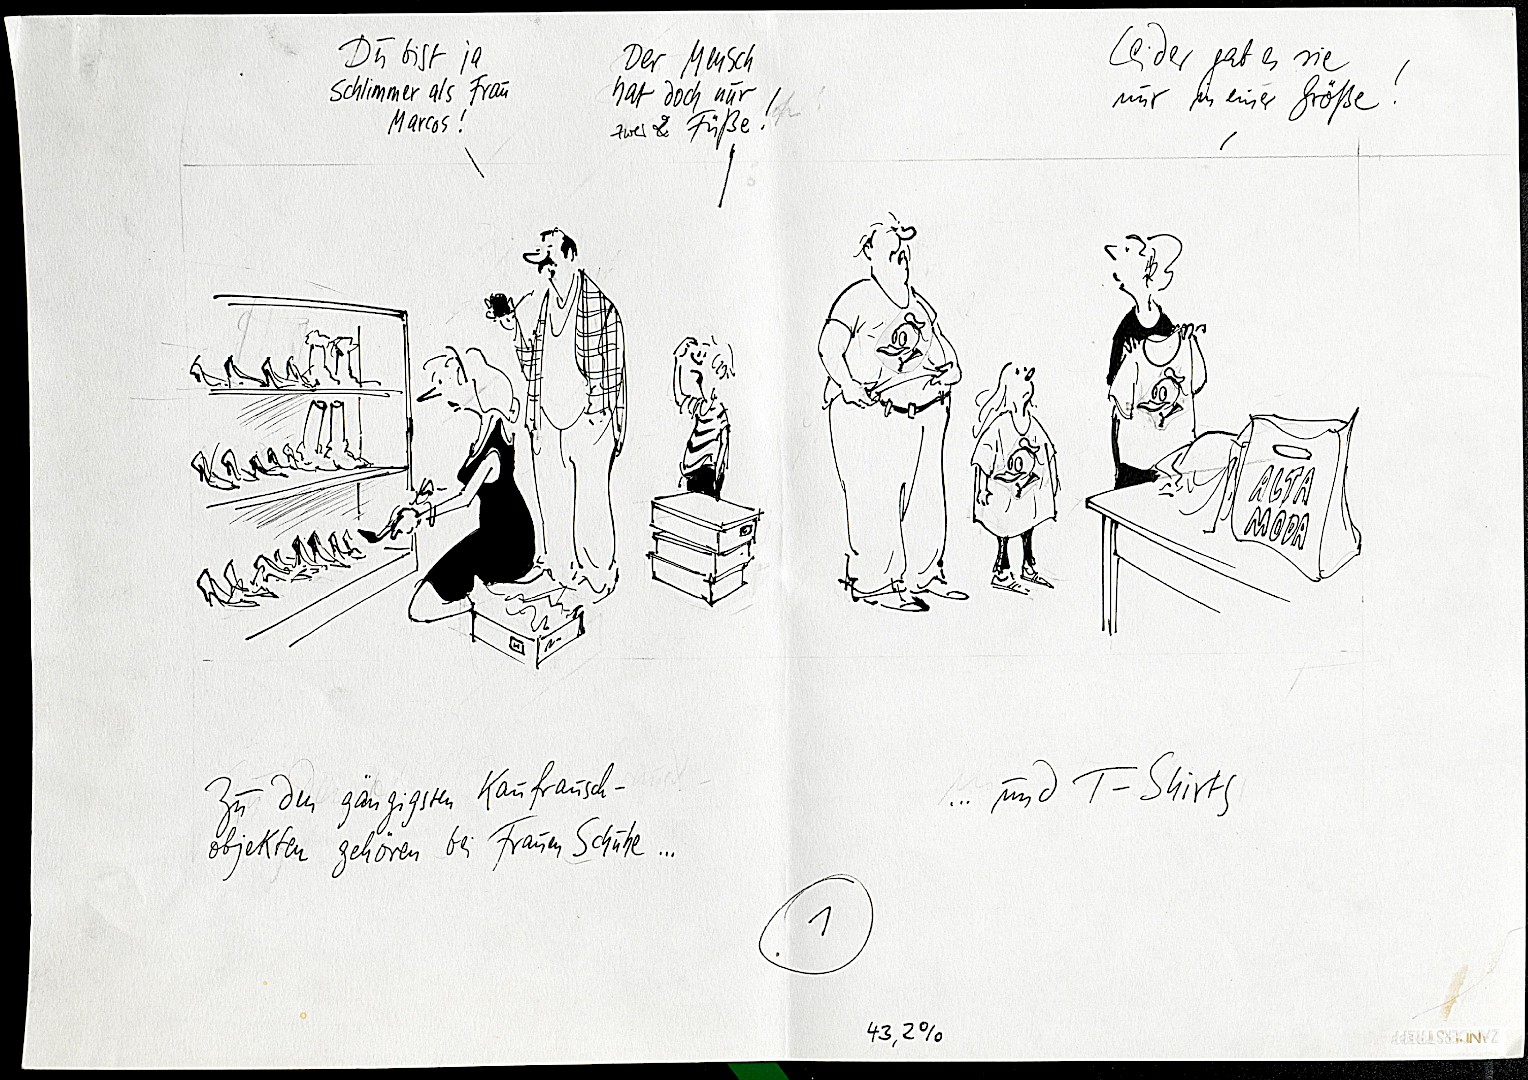 Du bist ja
schlimmer als Frau
Marcos!
Der Mensch
hat doch nur
zwei Füße!
Leider gab es sie
nur in einer Größe!
ALTA
MODA
Zu den gängigsten Kaufrausch-
objekten gehören bei Frauen Schuhe ...
... und T-Shirts
1
43,2%
ZANDERS